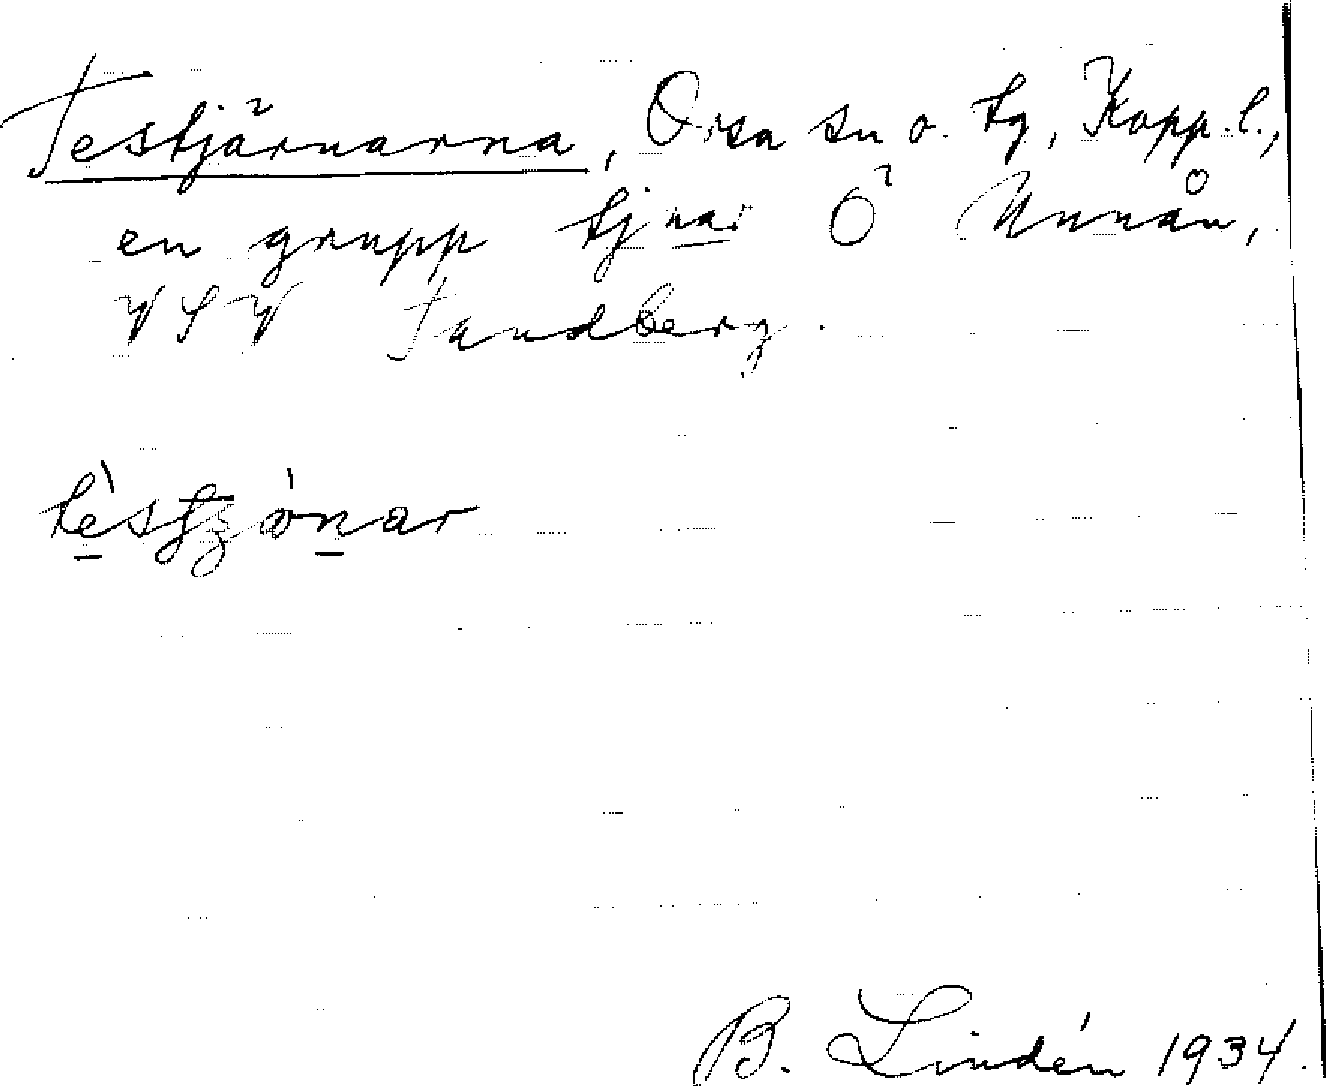 Testjärnarna, Orsa sn o. tg, Kopp. l.,
en grupp tjnar Ö Unnån,
VSV Sandberg.
B. Lindén 1934.